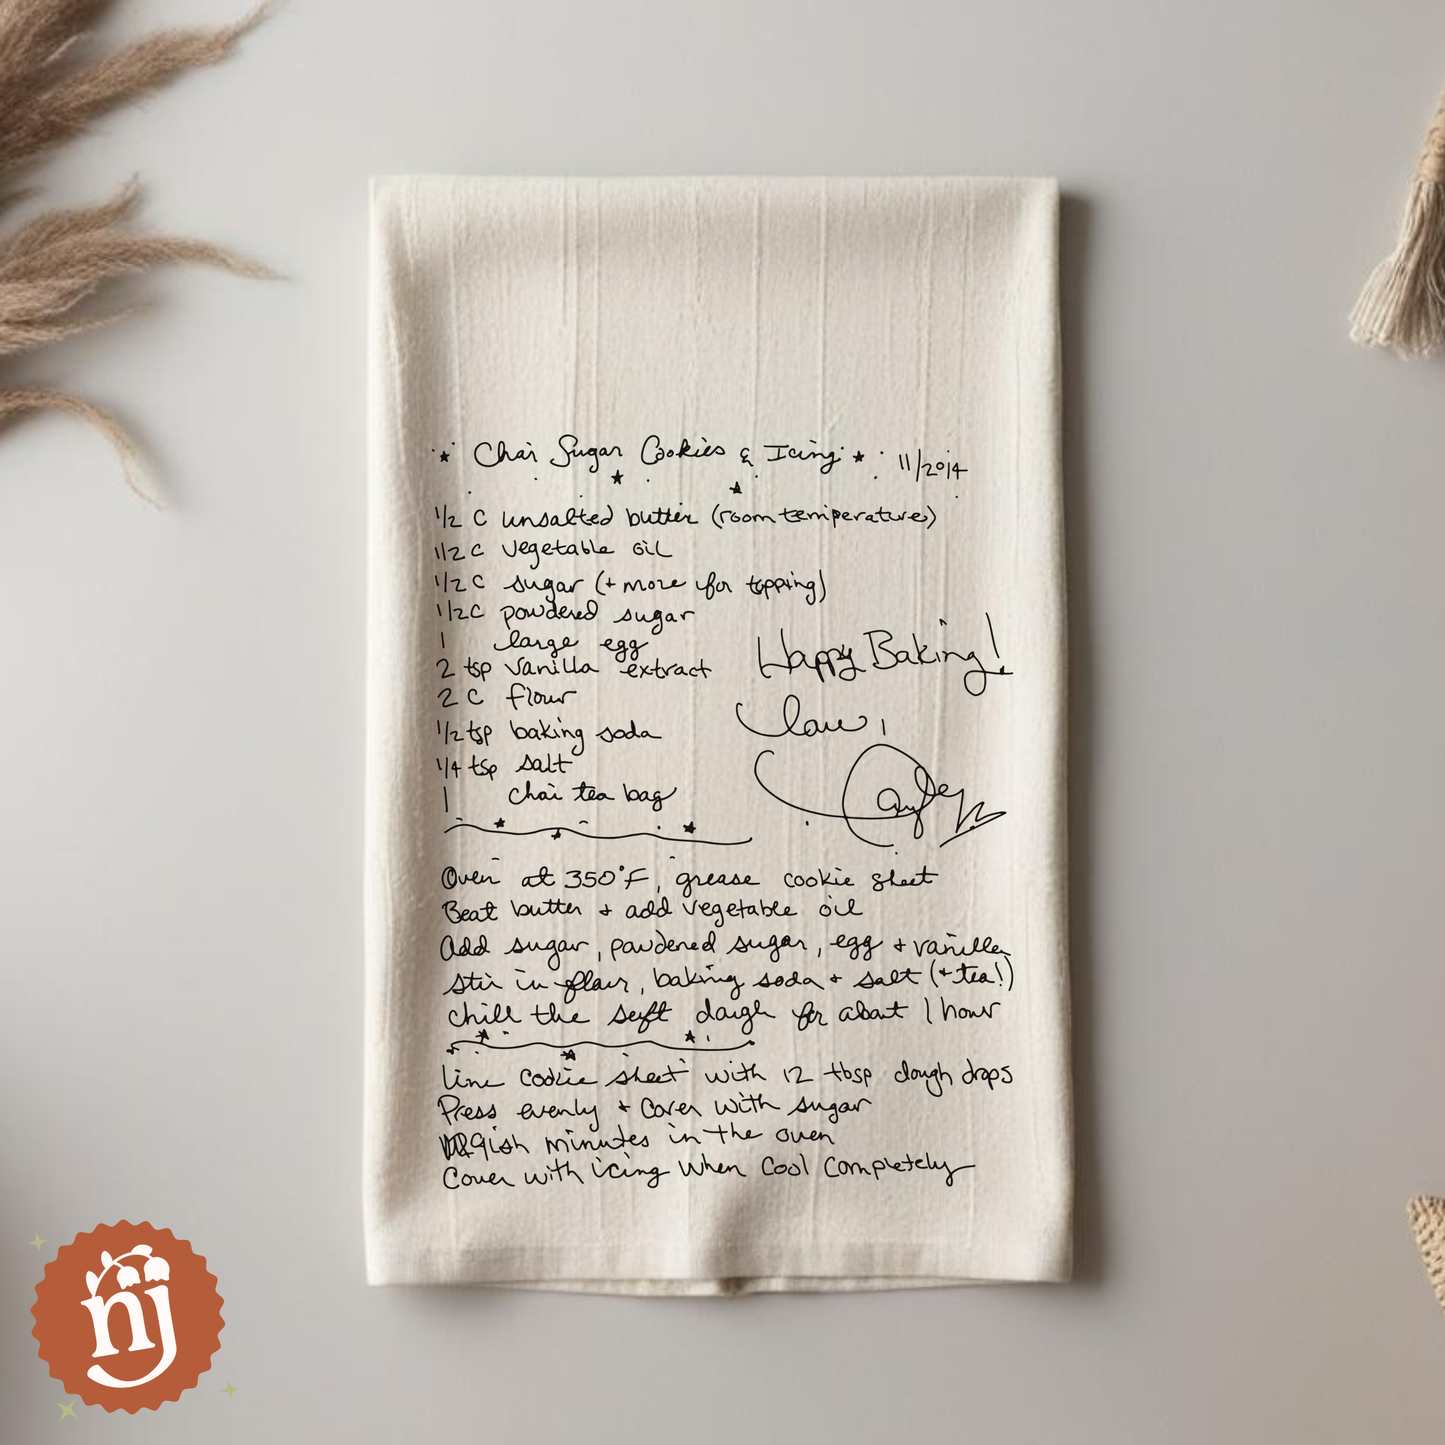 Chai Sugar Cookies & Icing 11/2014
1/2 C unsalted butter (room temperature)
1/2 C vegetable oil
1/2 C sugar (+ more for topping)
1/2 C powdered sugar
1 large egg
2 tsp vanilla extract
2 C flour
1/2 tsp baking soda
1/4 tsp salt
1 chai tea bag
Happy Baking!
Love,
Oven at 350°F, grease cookie sheet
Beat butter + add vegetable oil
Add sugar, powdered sugar, egg + vanilla
stir in flour, baking soda + salt (+ tea!)
chill the soft dough for about 1 hour
Line cookie sheet with 12 tbsp dough drops
Press evenly + cover with sugar
9ish minutes in the oven
Cover with icing when cool completely
nj